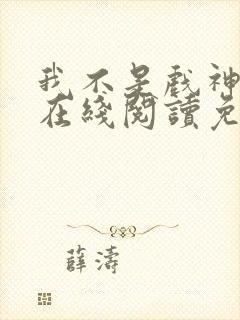 我不是戲神
在綫閱讀免
薛濤